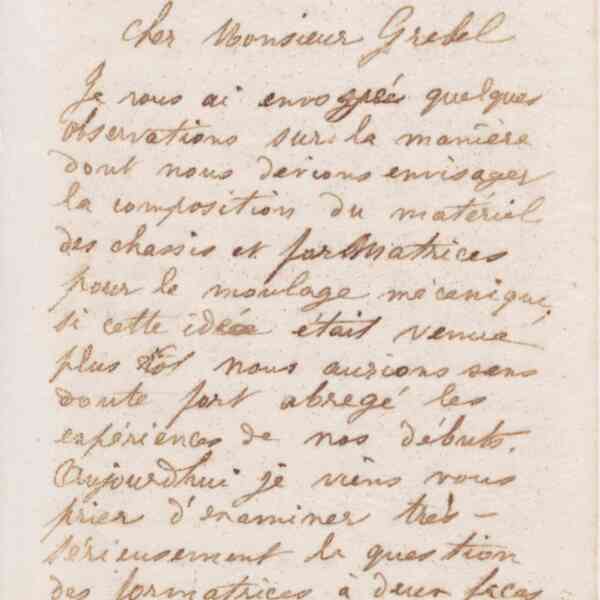 Cher Monsieur Gredel
Je vous ai envoyés quelques
observations sur la manière
dont nous devions envisager
la composition du matériel
des chassis et formatrices
pour le moulage mécanique,
si cette idée était venue
plus tôt nous aurions sans
doute fort abregé les
expériences de nos débuts.
Aujourdhui je viens vous
prier d'examiner très-
sérieusement la question
des formatrices à deux faces